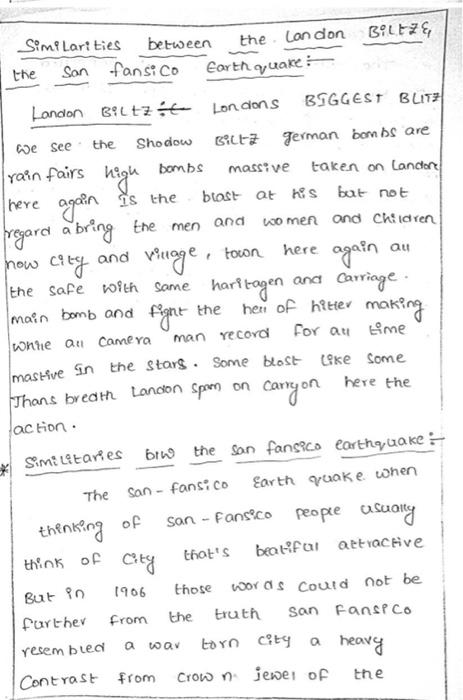 Similarities between the London BiLtz &
the San fansico Earthquake :-
Landon BiLtz :- Londons BIGGEST BLITZ
we see the Shodow BiLtz german bombs are
rain fairs high bombs massive taken on Landon
here again is the blast at his but not
regard a bring the men and women and children
now city and village, town here again all
the safe with same haritagen and carriage.
main bomb and fight the hell of hitler making
while all camera man record for all time
mastive in the stars. Some blost like some
Thans bredth Landon spam on carryon here the
action.
* Similitaries b/w the San fansico earthquake :-
The San-fansico Earth quake when
thinking of San-Fansico people usually
think of city that's beatiful attractive
But in 1906 those words could not be
further from the truth San Fansico
resembled a war torn city a heavy
Contrast from crown jewel of the